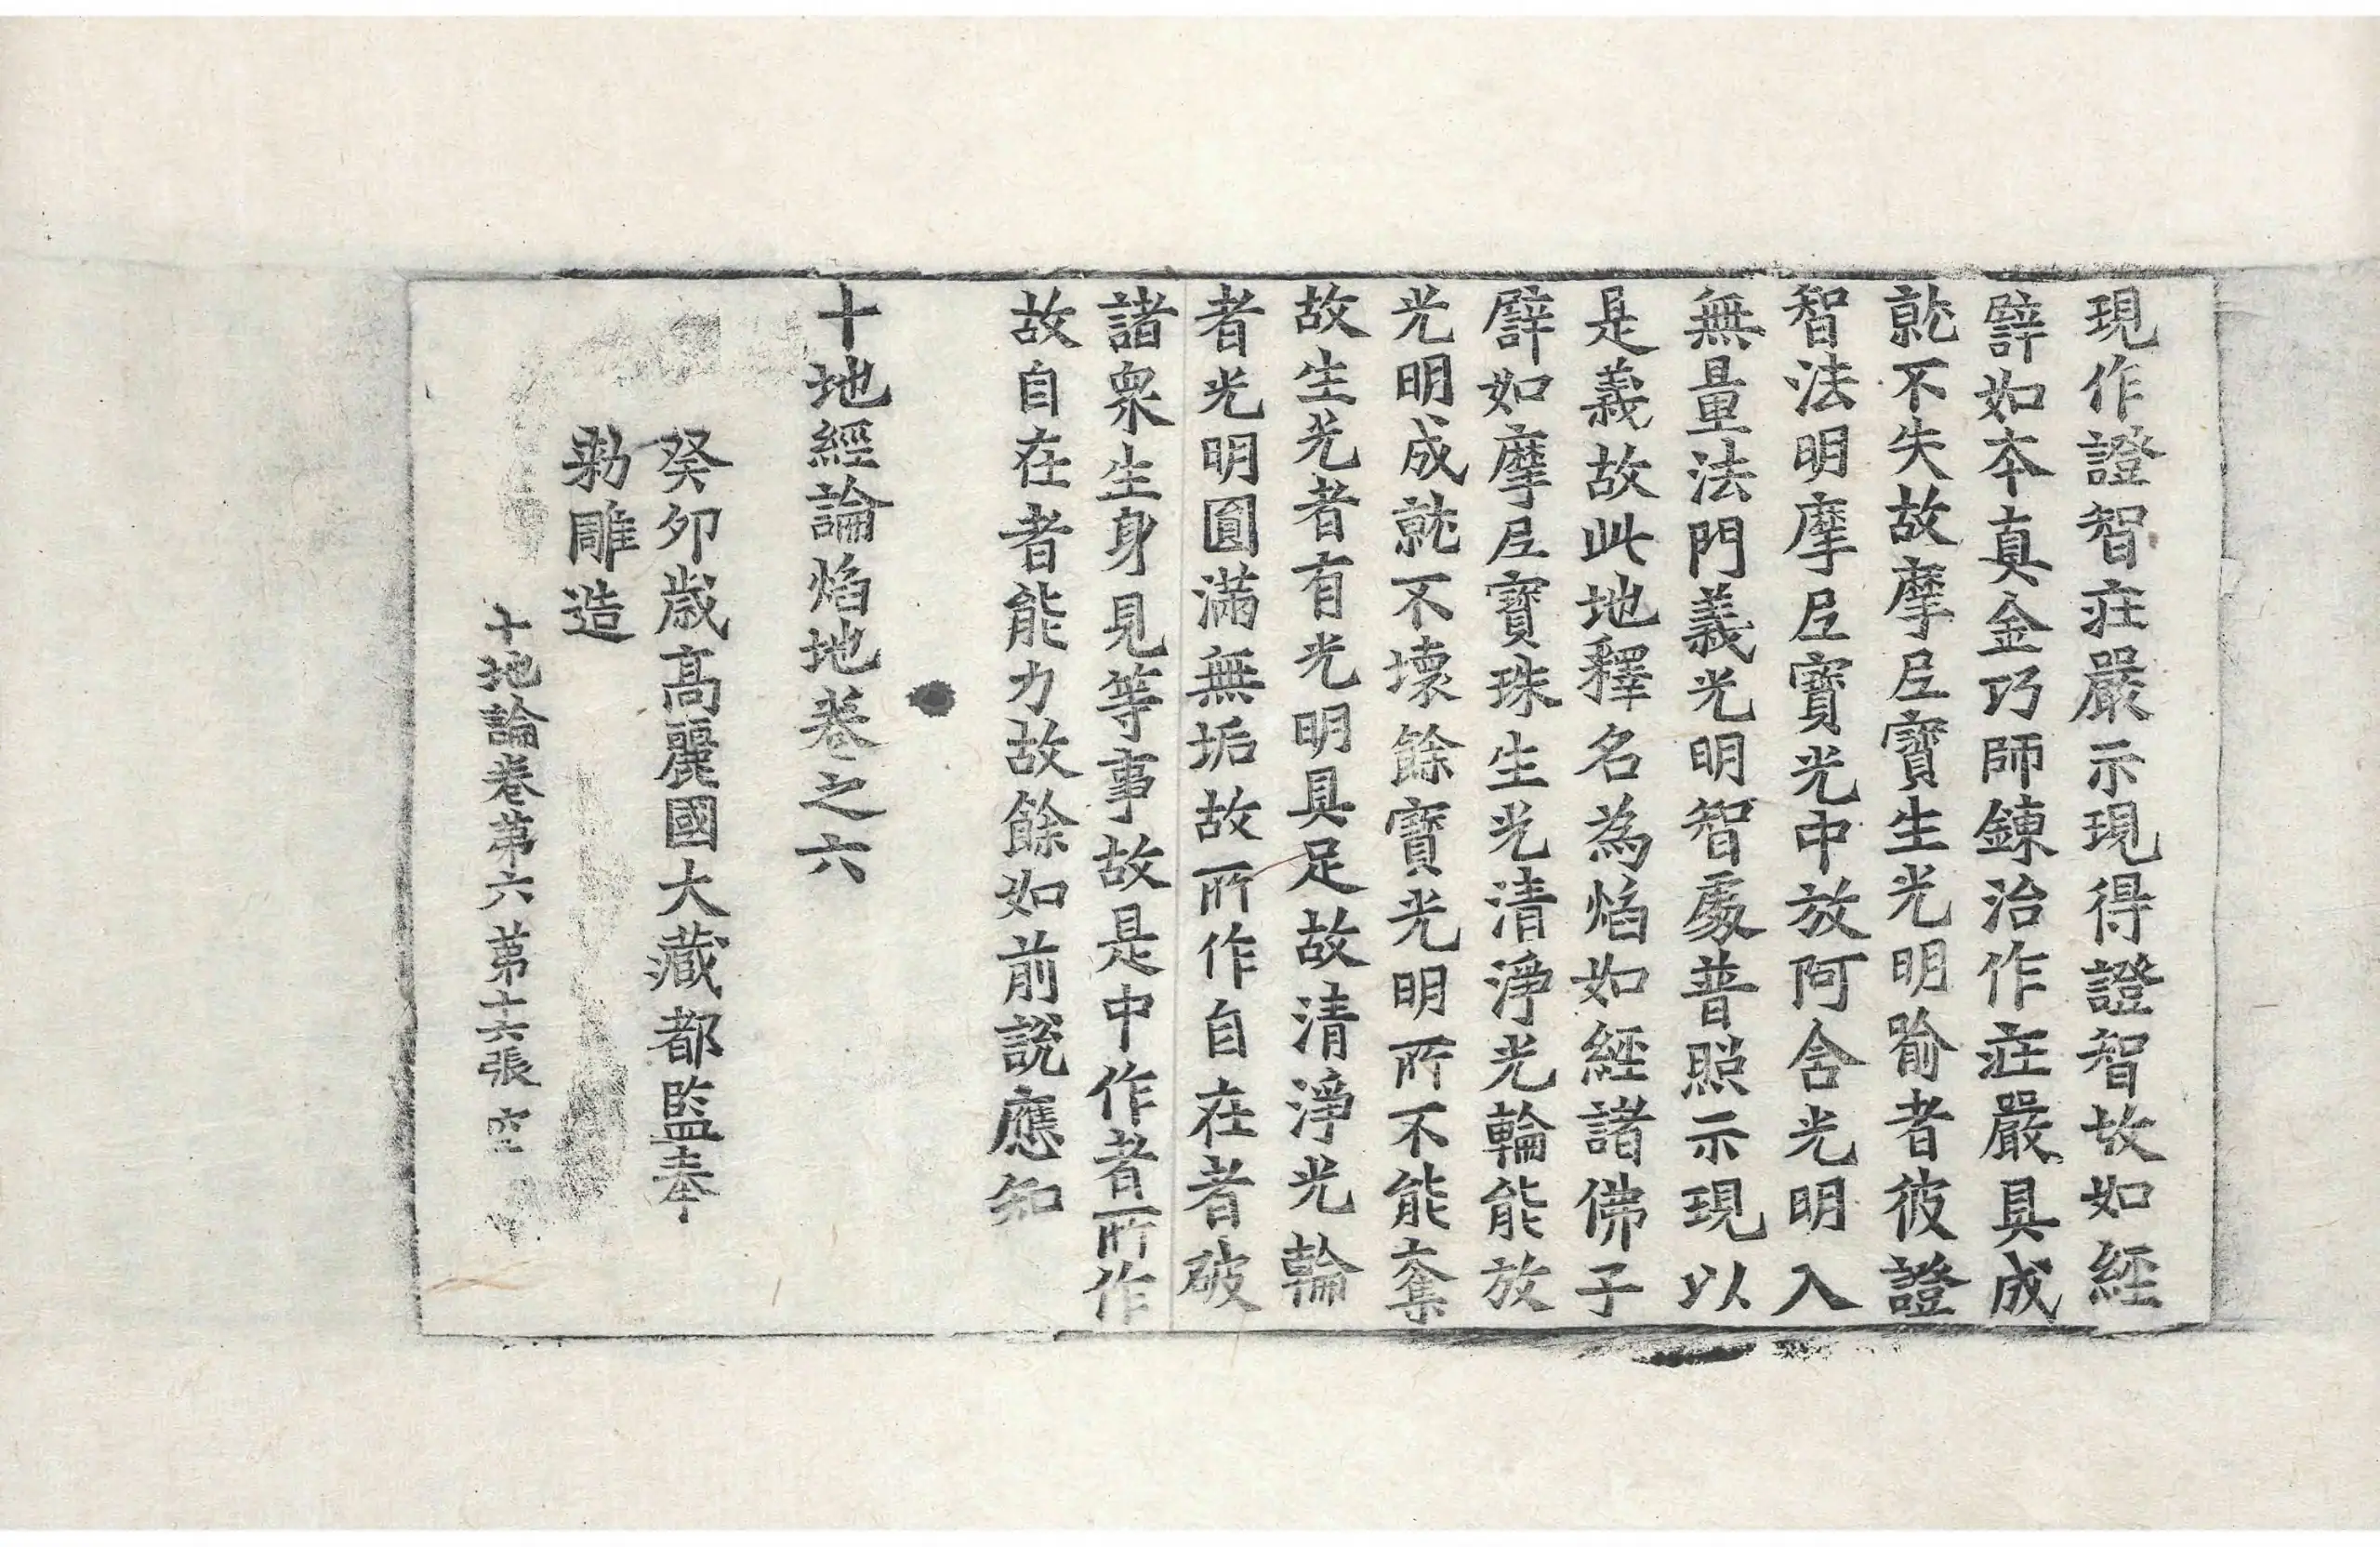 現作證智莊嚴示現得證智故如經
譬如本真金巧師鍊治作莊嚴具成
就不失故摩尼寶生光明喻者彼證
智法明摩尼寶光中放阿含光明入
無量法門義光明智處普照示現以
是義故此地釋名為焰如經諸佛子
譬如摩尼寶珠生光清淨光輪能放
光明成就不壞餘寶光明所不能奪
故生光者有光明具足故清淨光輪
者光明圓滿無垢故所作自在者破
諸衆生身見等事故是中作者所作
故自在者能力故餘如前說應知
十地經論焰地卷之六
癸卯歲高麗國大藏都監奉
勑雕造
十地論卷第六 第十六張